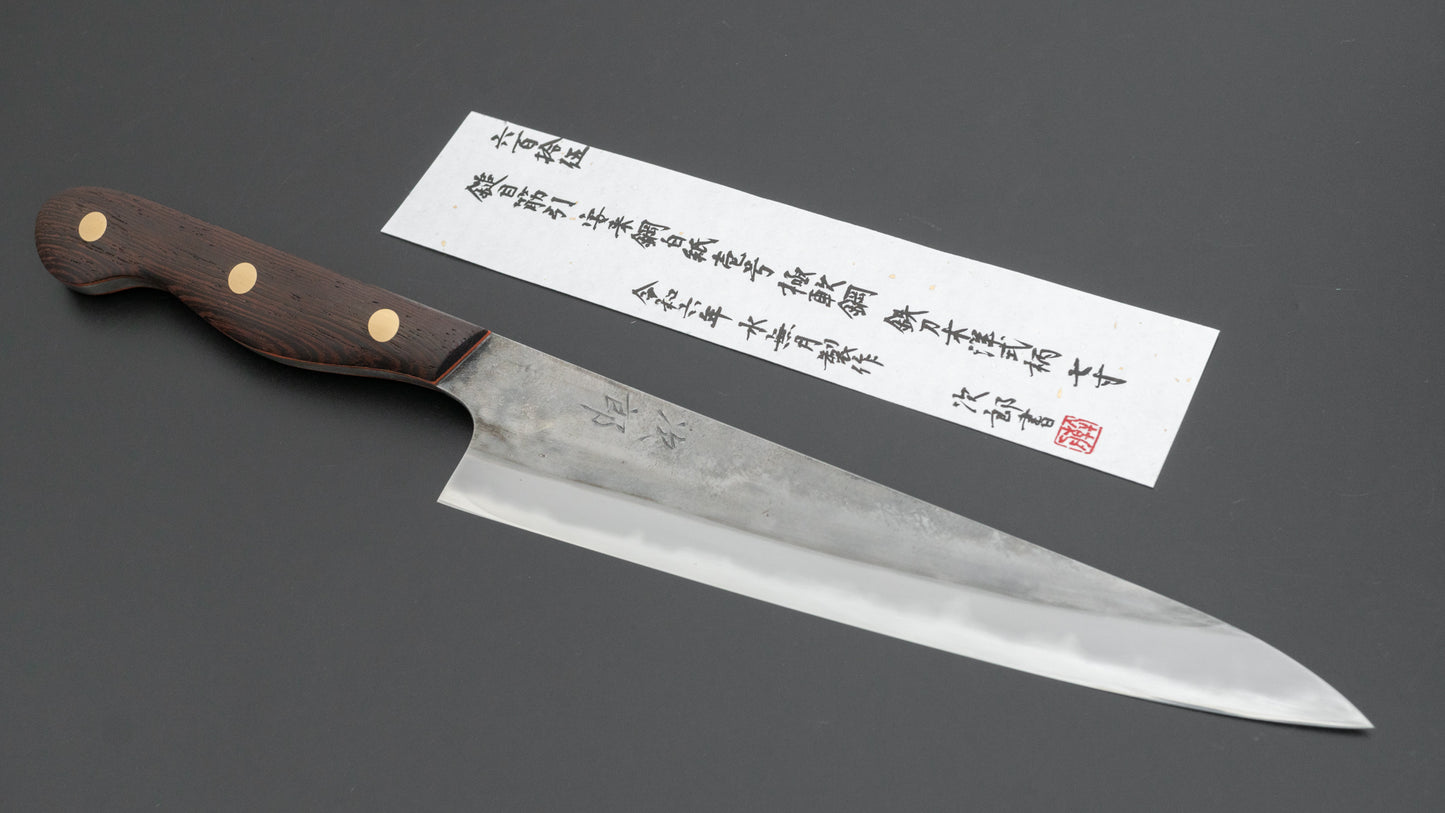 六百拾伍
鎚目筋引 安来鋼白紙壱号 極軟鋼 鉄刀木洋式柄 七寸
令和六年 水無月製作
次郎書
次郎